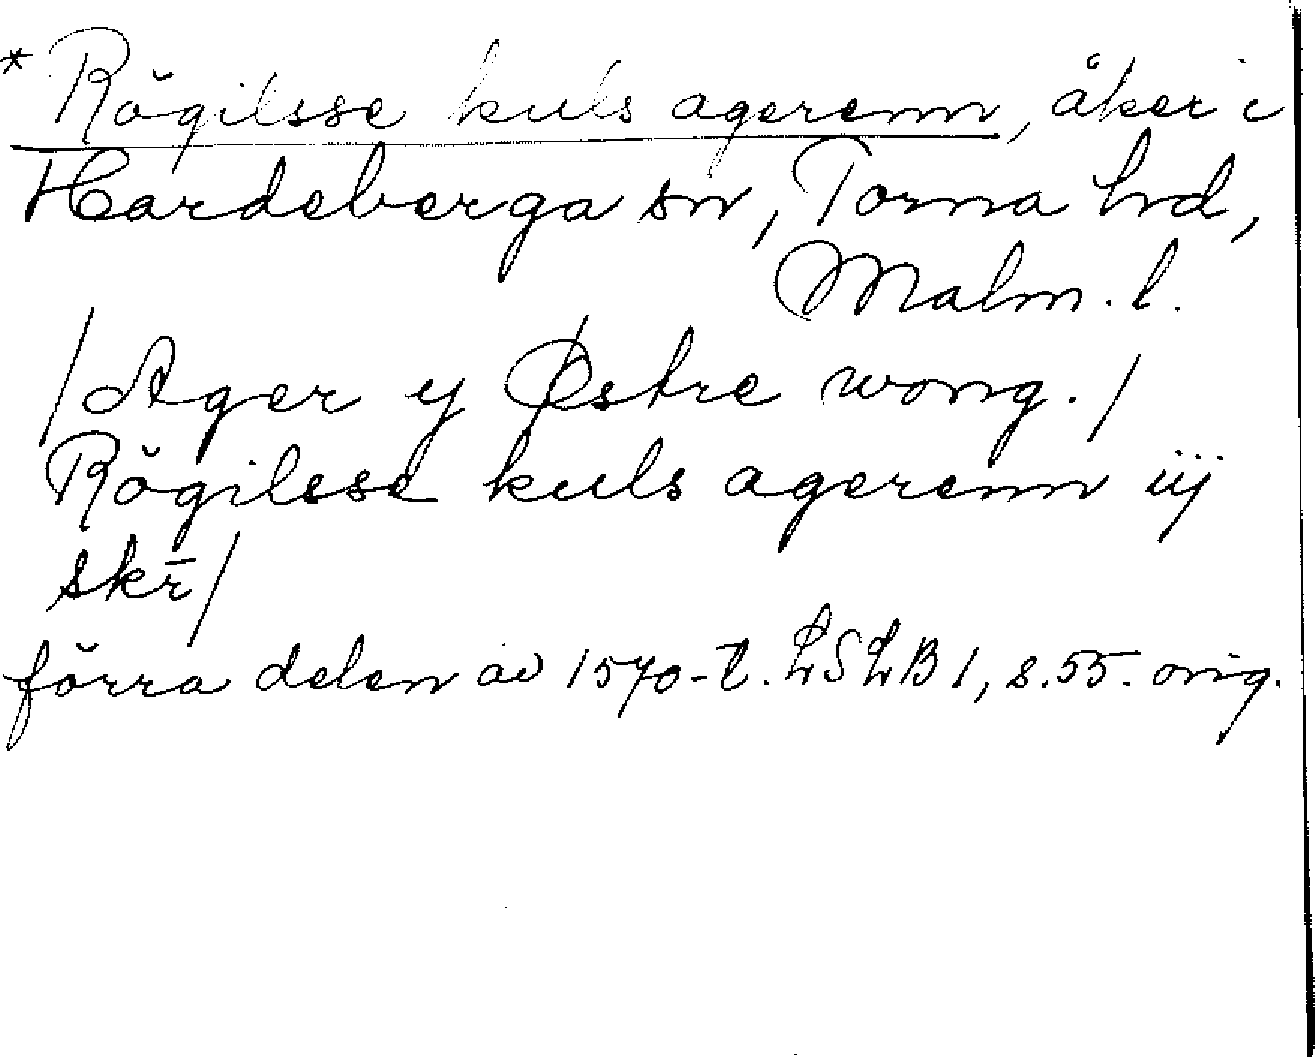 * Rögilsse kuls agerenn, åker i
Hardeberga sn, Torna hrd,
Malm. l.
/Ager y Østre wong./
Rögilsse kuls agerenn iij
skr̄/
förra delen av 1570-t. LSLB 1, s. 55. orig.